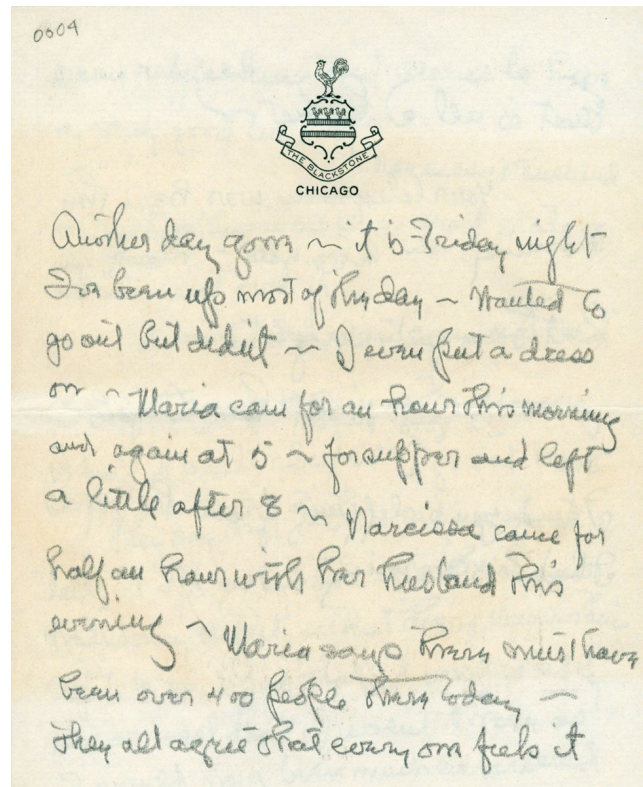 0604
THE BLACKSTONE
CHICAGO
Another day gone ~ it is Friday night
I've been up most of the day ~ Wanted to
go out but didn't ~ I even put a dress
on ~ Maria came for an hour this morning
and again at 5 ~ for supper and left
a little after 8 ~ Narcissa came for
half an hour with her husband this
evening ~ Maria says there must have
been over 400 people there today ~
They all agree that every one feels it